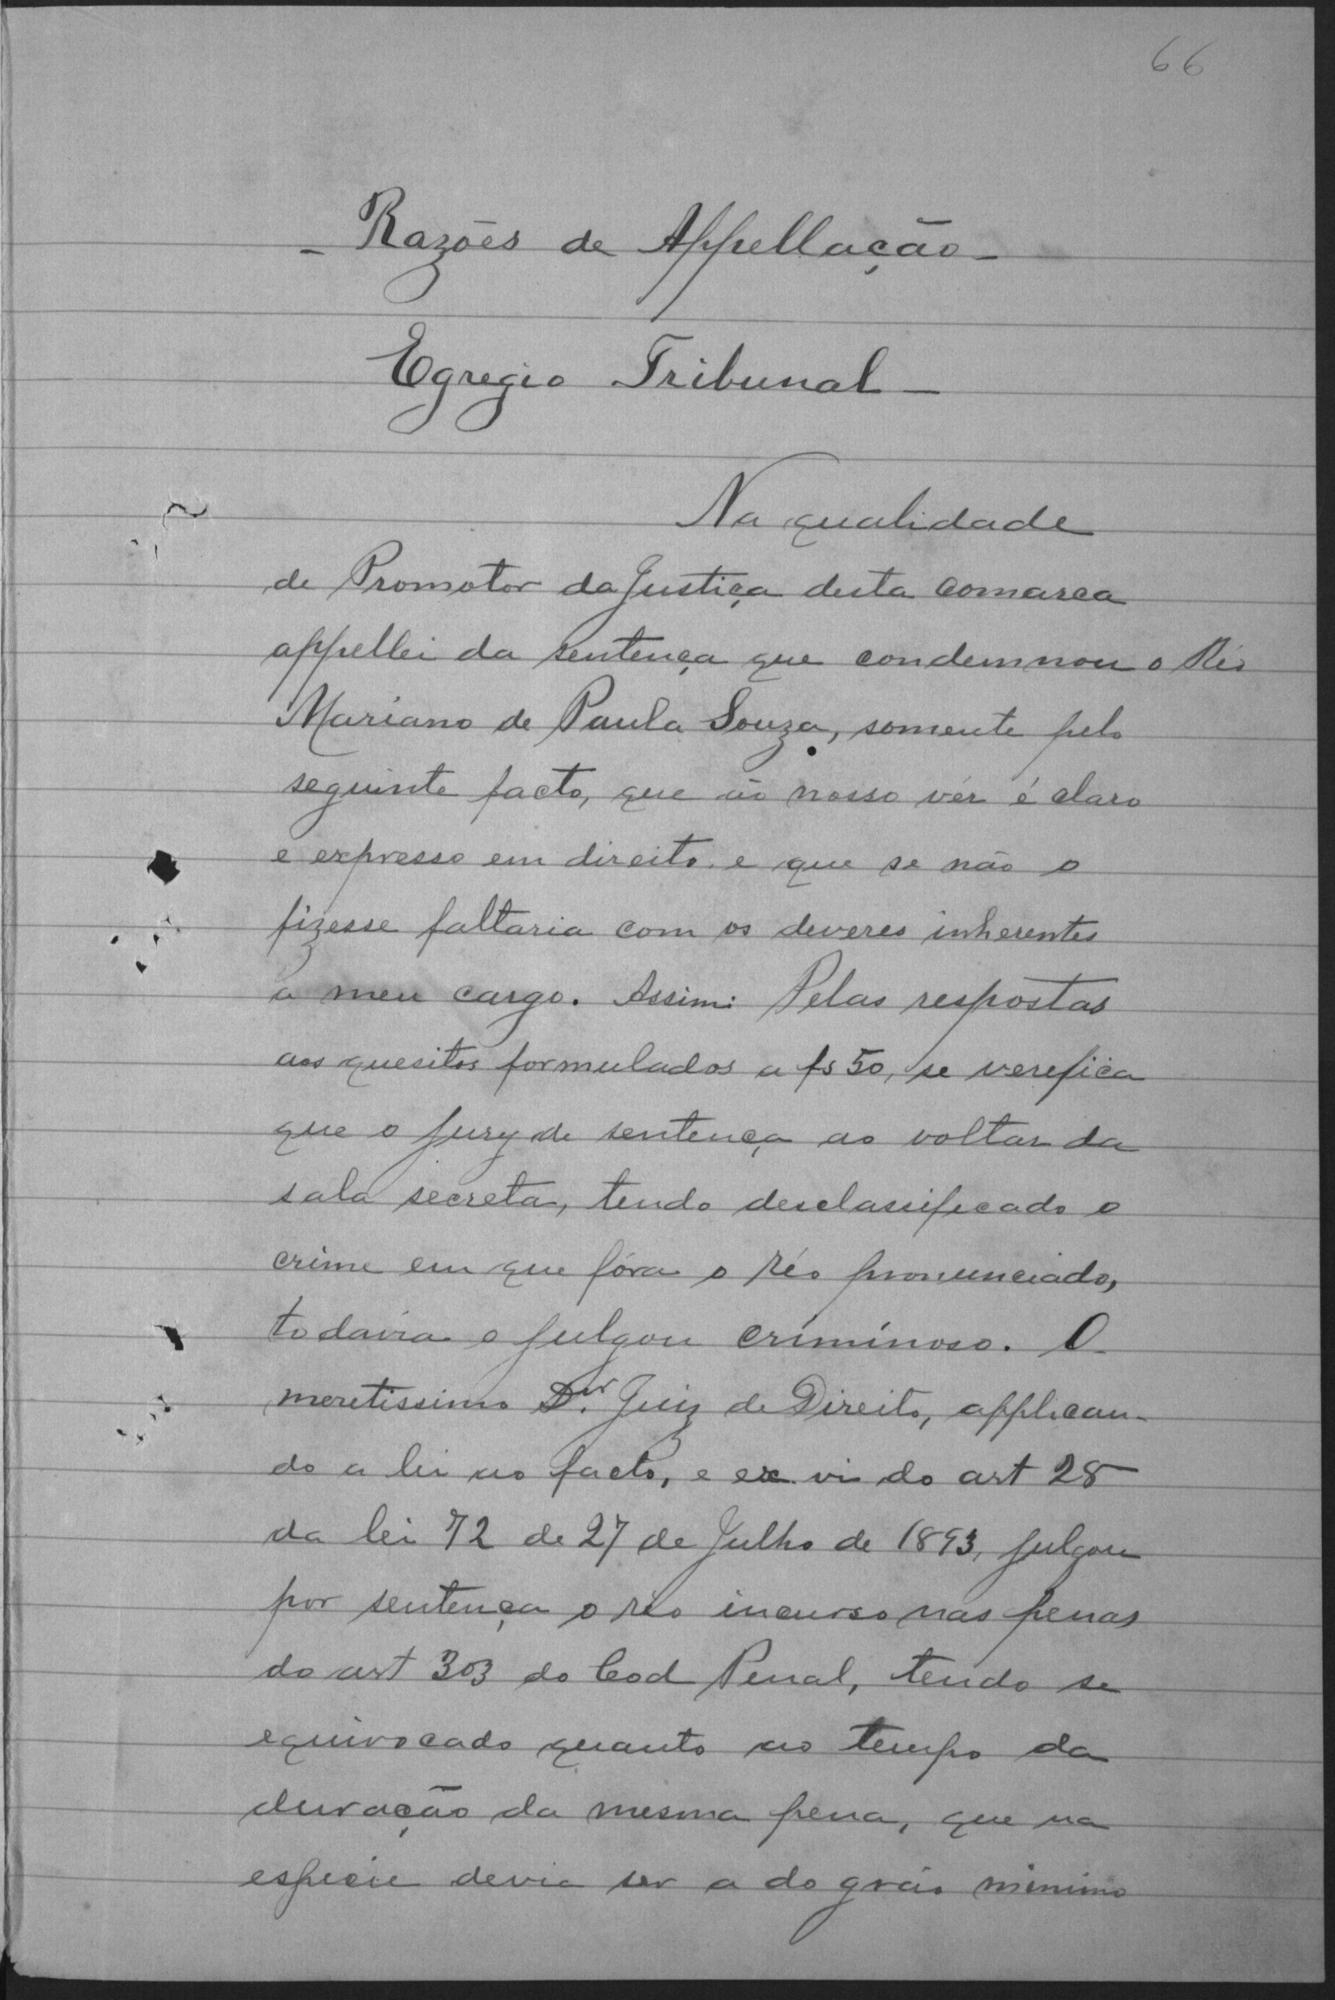 66
- Razões de Appellação -
Egregio Tribunal -
Na qualidade
de Promotor da Justiça desta comarca
appellei da sentença que condemnou o Réo
Mariano de Paula Souza, somente pelo
seguinte facto, que ao nosso vêr é claro
e expresso em direito e que se não o
fizesse faltaria com os deveres inherentes
a meu cargo. Assim: Pelas respostas
aos quesitos formulados a fs 50, se verefica
que o jury de sentença ao voltar da
sala secreta, tendo desclassificado o
crime em que fôra o réo pronunciado,
todavia o julgou criminoso. O
meretissimo Dr. Juiz de Direito, applican-
do a lei ao facto, e ex vi do art 28
da lei 72 de 27 de Julho de 1893, julgou
por sentença o réo incurso nas penas
do art 303 do Cod Penal, tendo se
equivocado quanto ao tempo da
duração da mesma pena, que na
especie devia ser a do gráo minimo